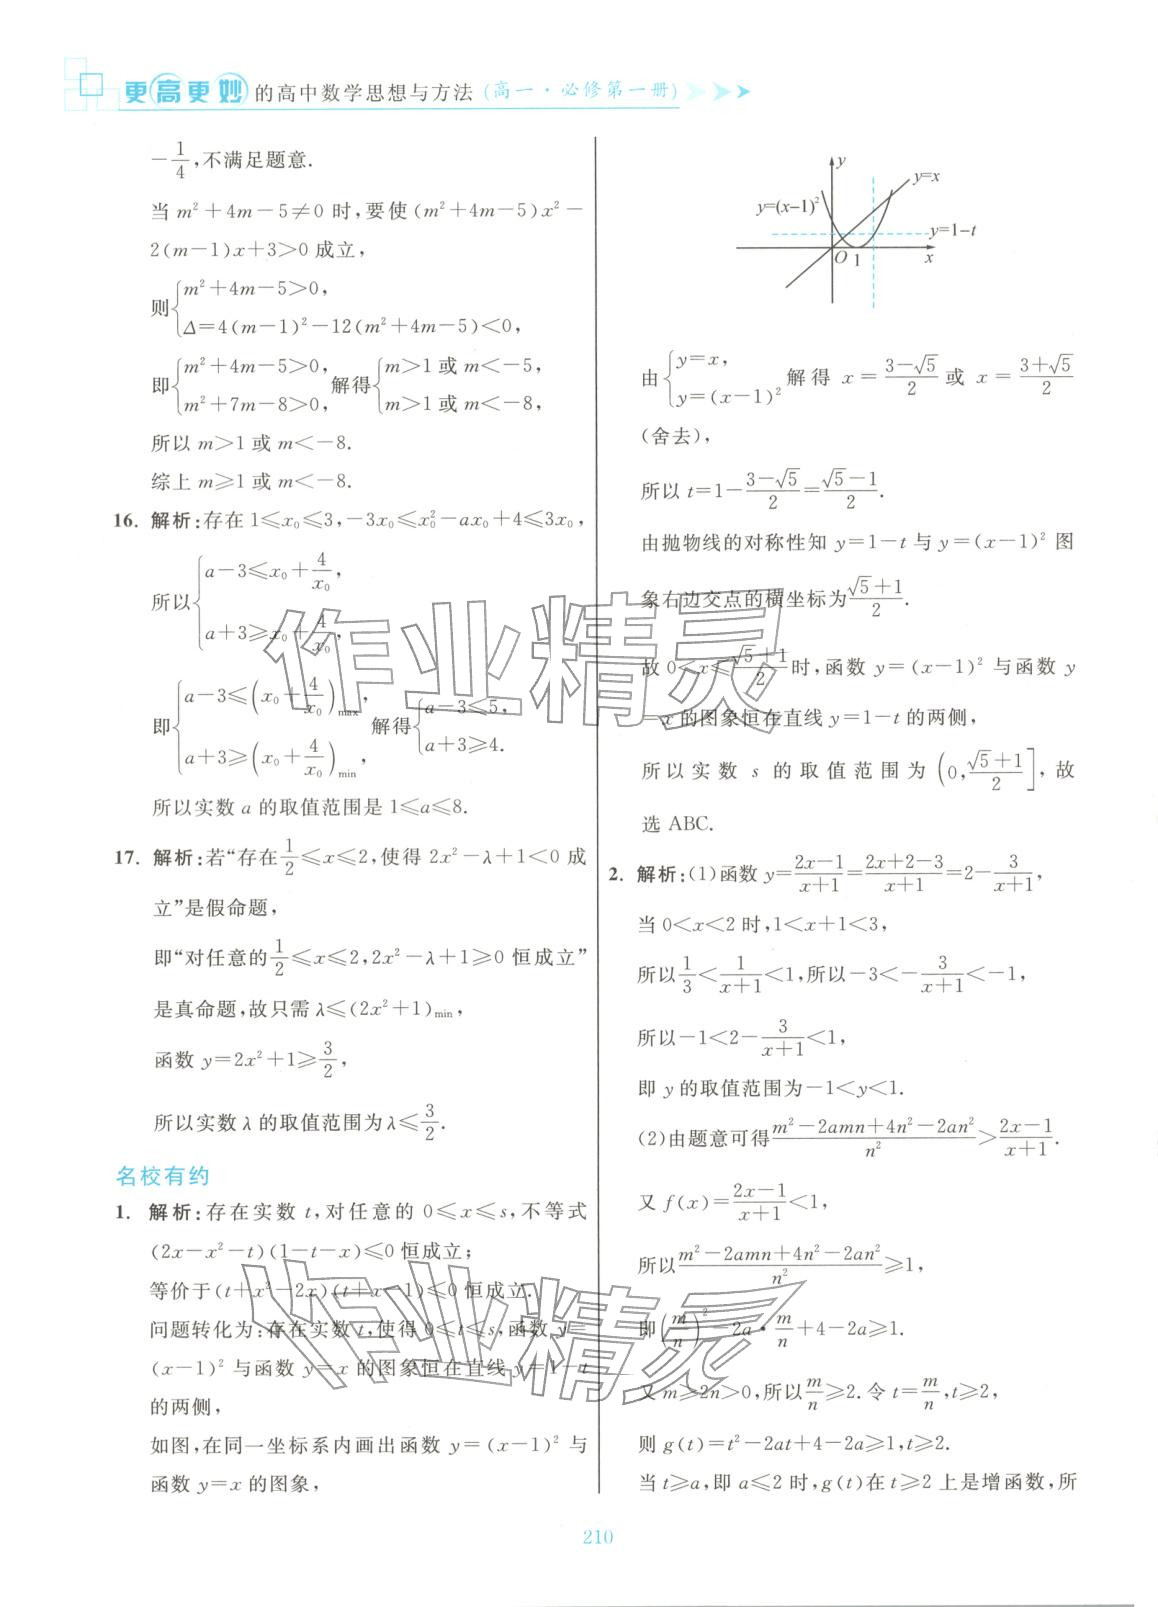 更高更妙的高中数学思想与方法(高一·必修第一册)
-1/4,不满足题意.
当 m²+4m-5≠0 时,要使(m²+4m-5)x²-
2(m-1)x+3>0 成立,
则{m²+4m-5>0,
Δ=4(m-1)²-12(m²+4m-5)<0,
即{m²+4m-5>0, 解得{m>1 或 m<-5,
m²+7m-8>0, m>1 或 m<-8,
所以 m>1 或 m<-8.
综上 m≥1 或 m<-8.
16. 解析:存在 1≤x₀≤3,-3x₀≤x₀²-ax₀+4≤3x₀,
所以{a-3≤x₀+4/x₀,
a+3≥x₀+4/x₀,
即{a-3≤(x₀+4/x₀)max, 解得{a-3≤5,
a+3≥(x₀+4/x₀)min a+3≥4.
所以实数 a 的取值范围是 1≤a≤8.
17. 解析:若“存在1/2≤x≤2,使得 2x²-λ+1<0 成
立”是假命题,
即“对任意的1/2≤x≤2,2x²-λ+1≥0 恒成立”
是真命题,故只需 λ≤(2x²+1)min,
函数 y=2x²+1≥3/2,
所以实数 λ 的取值范围为 λ≤3/2.
名校有约
1. 解析:存在实数 t,对任意的 0≤x≤s,不等式
(2x-x²-t)(1-t-x)≤0 恒成立;
等价于(t+x²-2x)(t+x-1)≤0 恒成立.
问题转化为:存在实数 t,使得 0≤t≤s,函数 y=
(x-1)² 与函数 y=x 的图象恒在直线 y=1-t
的两侧,
如图,在同一坐标系内画出函数 y=(x-1)² 与
函数 y=x 的图象,
y
y=x
y=(x-1)²
y=1-t
O 1 x
由{y=x, 解得 x=(3-√5)/2 或 x=(3+√5)/2
y=(x-1)²
(舍去),
所以 t=1-(3-√5)/2=(√5-1)/2.
由抛物线的对称性知 y=1-t 与 y=(x-1)² 图
象右边交点的横坐标为(√5+1)/2.
故 0<x≤(√5+1)/2时,函数 y=(x-1)² 与函数 y
=x 的图象恒在直线 y=1-t 的两侧,
所以实数 s 的取值范围为(0,(√5+1)/2],故
选 ABC.
2. 解析:(1)函数 y=(2x-1)/(x+1)=(2x+2-3)/(x+1)=2-3/(x+1),
当 0<x<2 时,1<x+1<3,
所以1/3<1/(x+1)<1,所以-3<-3/(x+1)<-1,
所以-1<2-3/(x+1)<1,
即 y 的取值范围为-1<y<1.
(2)由题意可得(m²-2amn+4n²-2an²)/n²>(2x-1)/(x+1).
又 f(x)=(2x-1)/(x+1)<1,
所以(m²-2amn+4n²-2an²)/n²≥1,
即(m/n)²-2a·m/n+4-2a≥1.
又 m≥2n>0,所以m/n≥2.令 t=m/n,t≥2,
则 g(t)=t²-2at+4-2a≥1,t≥2.
当 t≥a,即 a≤2 时,g(t)在 t≥2 上是增函数,所
210
作业精灵
作业精灵